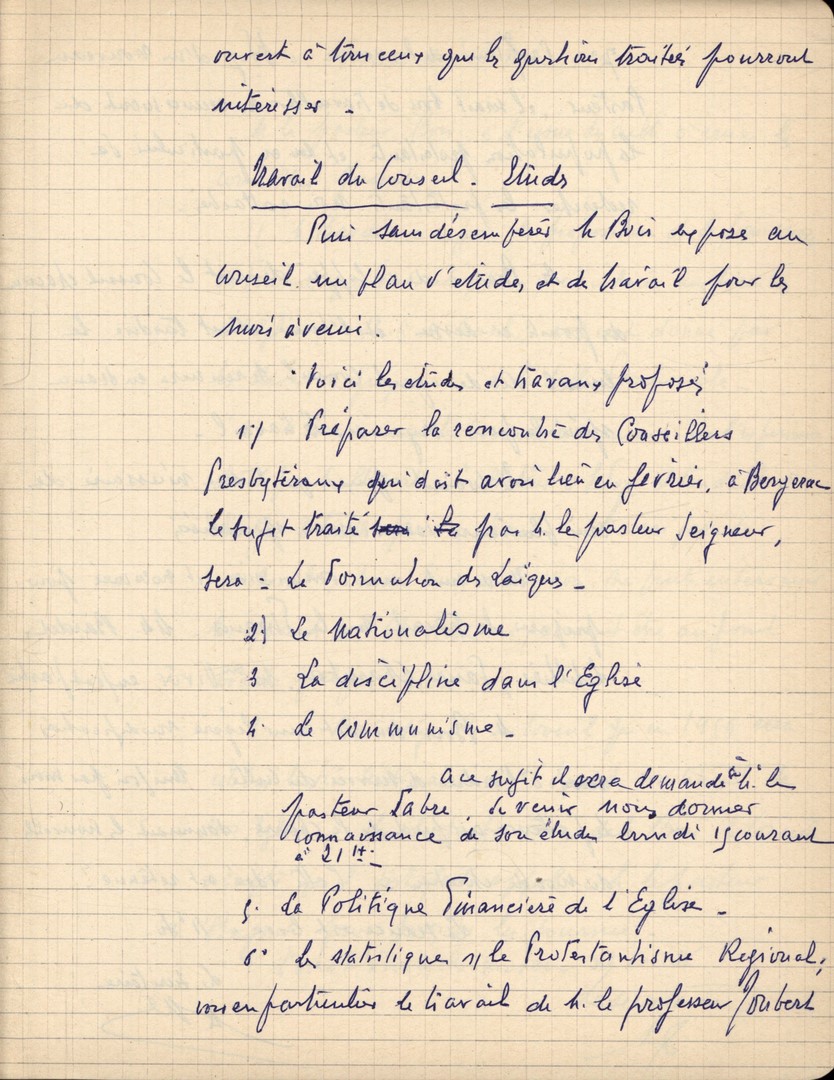 ouvert à tous ceux que les questions traitées pourront
intéresser -
Travail du Conseil - Etudes
Puis sans désemparer M. Bois expose au
Conseil un plan d'études et de travail pour les
mois à venir.
Voici les études et travaux proposés
1°/ Préparer la rencontre des Conseillers
Presbytéraux qui doit avoir lieu en février, à Bergerac
le sujet traité par M. le pasteur Seigneur,
sera : La Formation des Laïques -
2°/ Le Nationalisme
3 La discipline dans l'Eglise
4. Le communisme -
A ce sujet il sera demandé à M. le
pasteur Fabre, de venir nous donner
connaissance de son étude lundi 15 courant
à 21 H. -
5. La Politique Financière de l'Eglise -
6° Les statistiques s/ le Protestantisme Régional,
voir en particulier le travail de M. le professeur Joubert